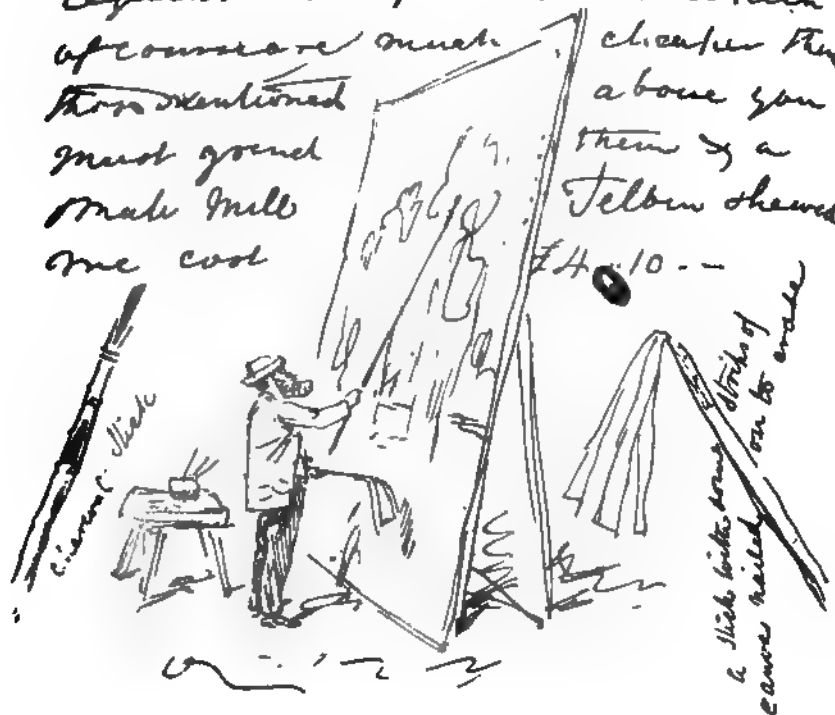 of course are much cheaper than
those mentioned above you
must grind them by a
small Mill Telbin shewed
me cost £4..10.-
charcoal stick
a stick with some strips of
canvas nailed on to erase